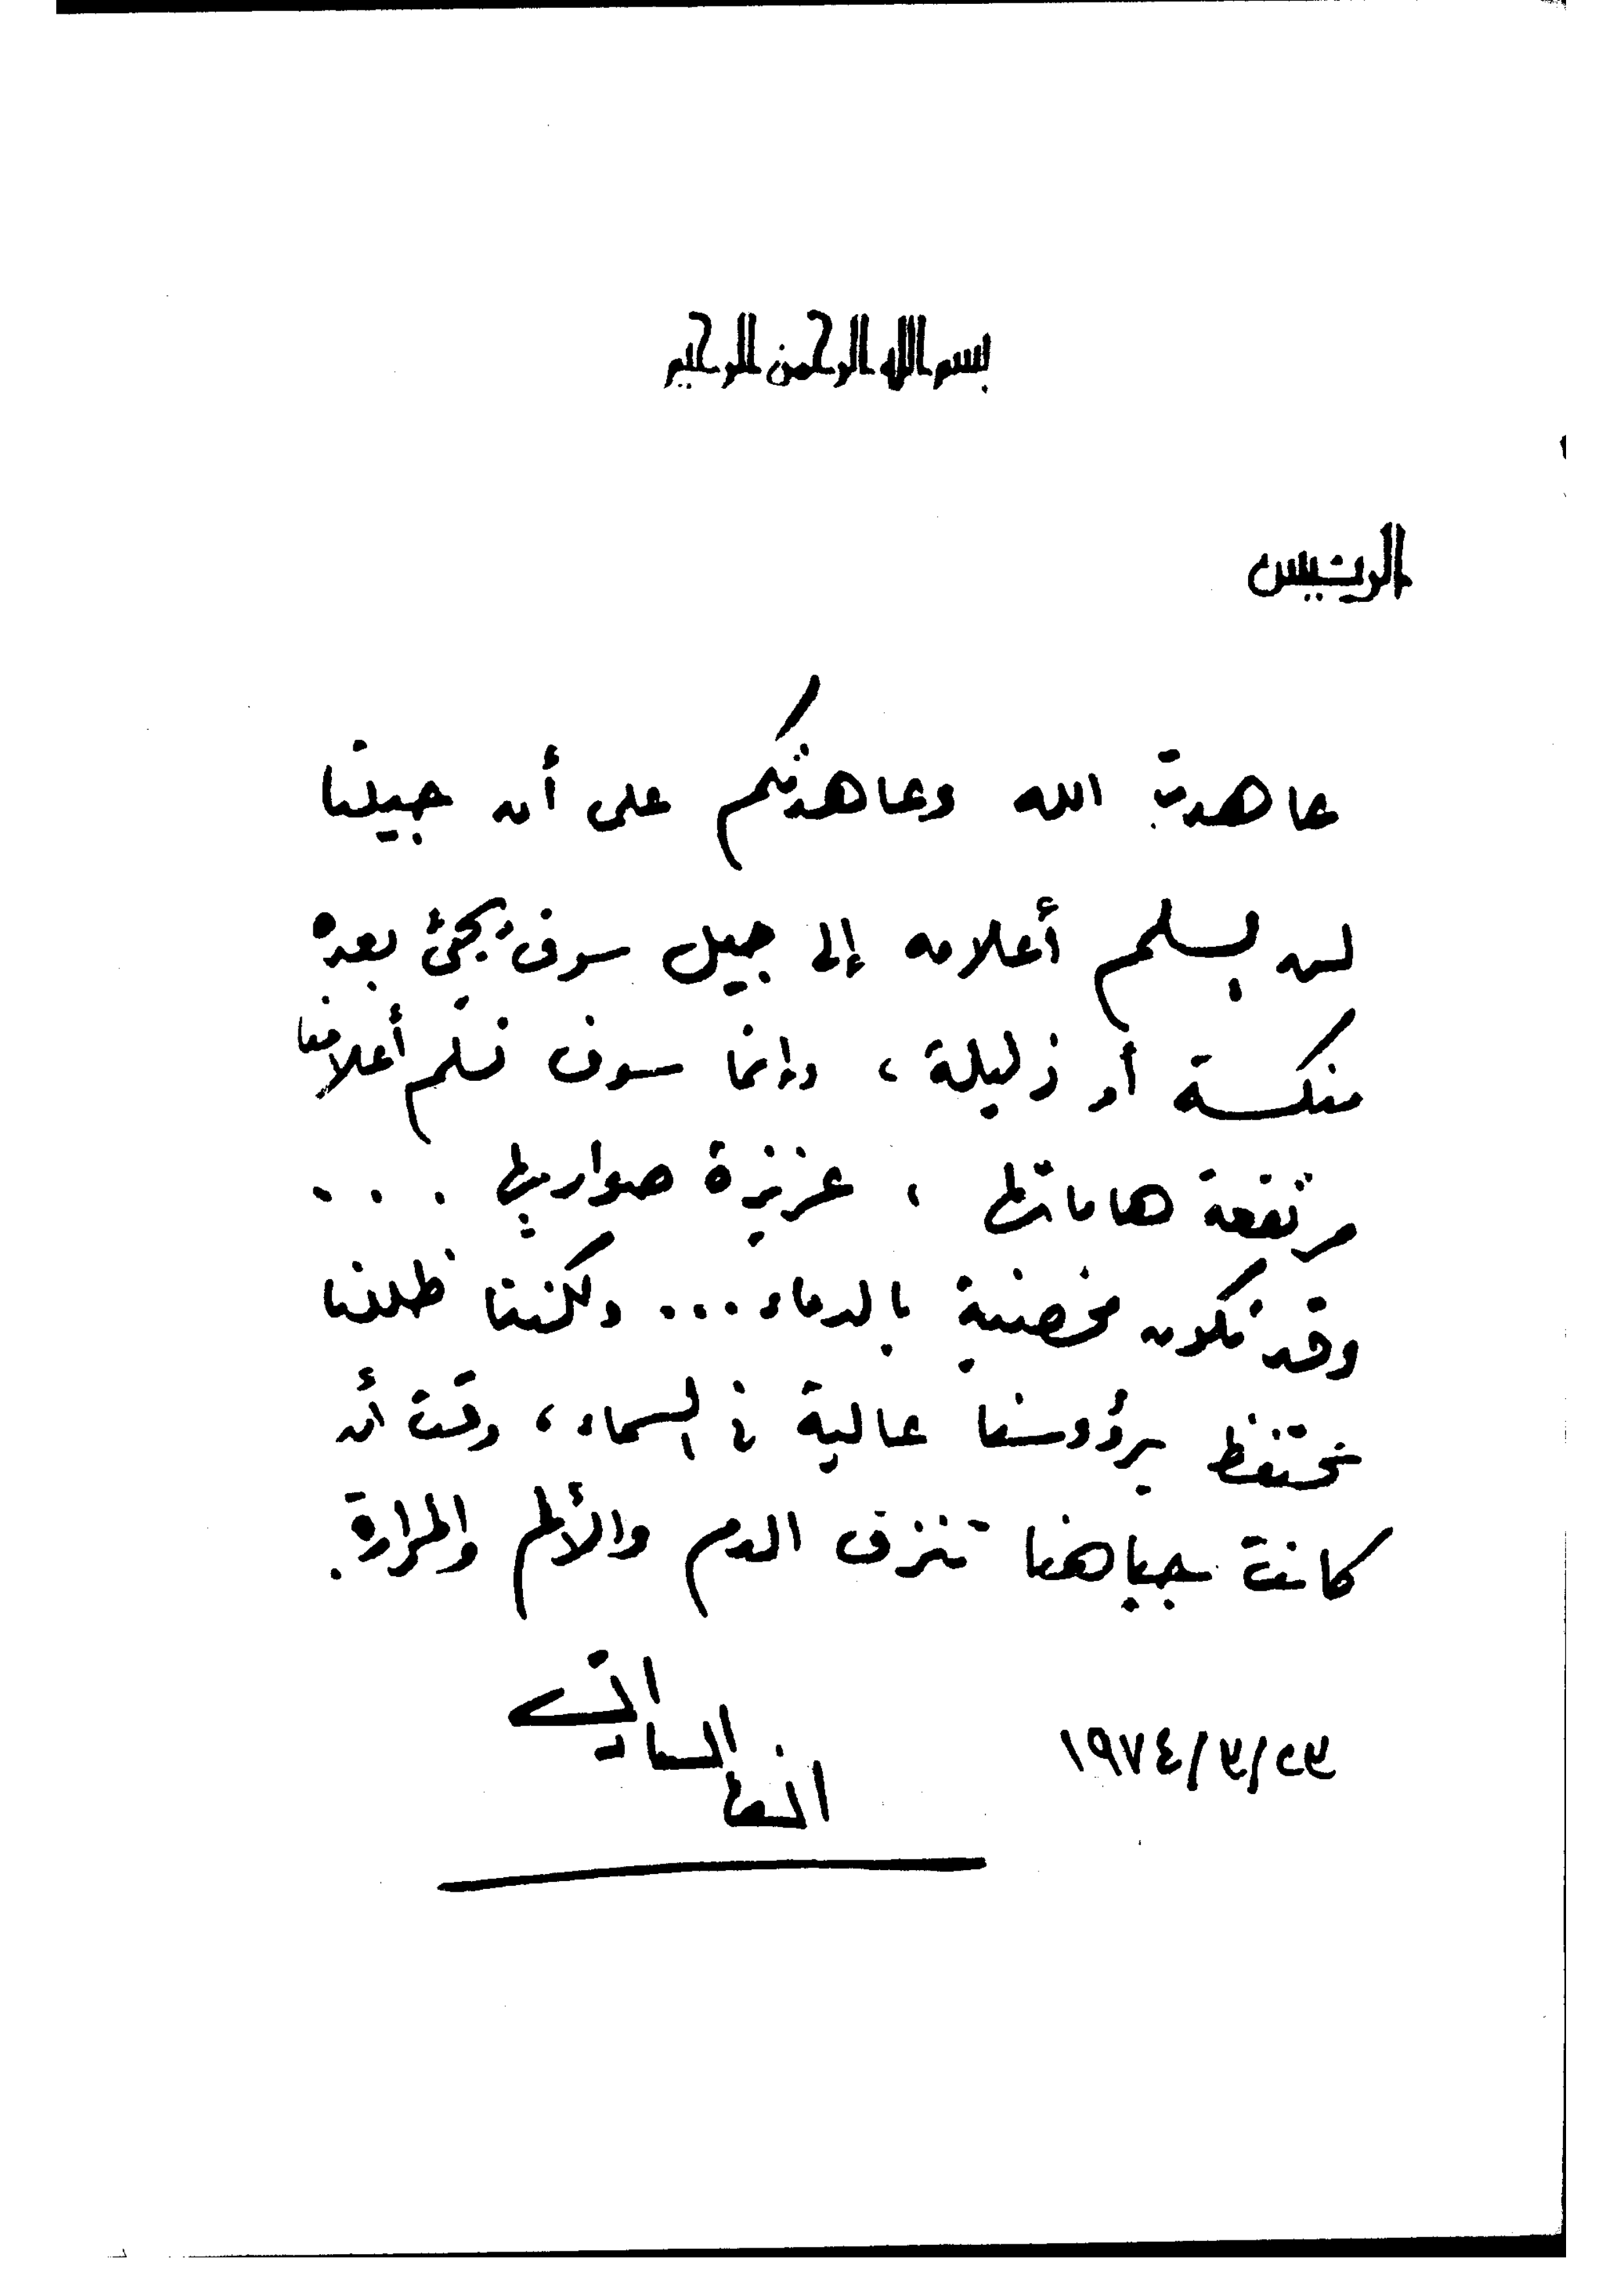 بسم الله الرحمن الرحيم
الرئيس
عاهدت الله وعاهدتكم على أن جيلنا
لن يسلم أعلامه إلى جيل سوف يجئ بعده
منكسة أو ذليلة، وإنما سوف نسلم أعلامنا
مرتفعة هاماتها، عزيزة صواريها ...
وقد تكون مخضبة بالدماء ... ولكننا ظللنا
نحتفظ برؤوسنا عالية في السماء، وقت أن
كانت جباهنا تنزف الدم والألم والمرارة.
أنور السادات
١٩٧٤/٣/٢٣